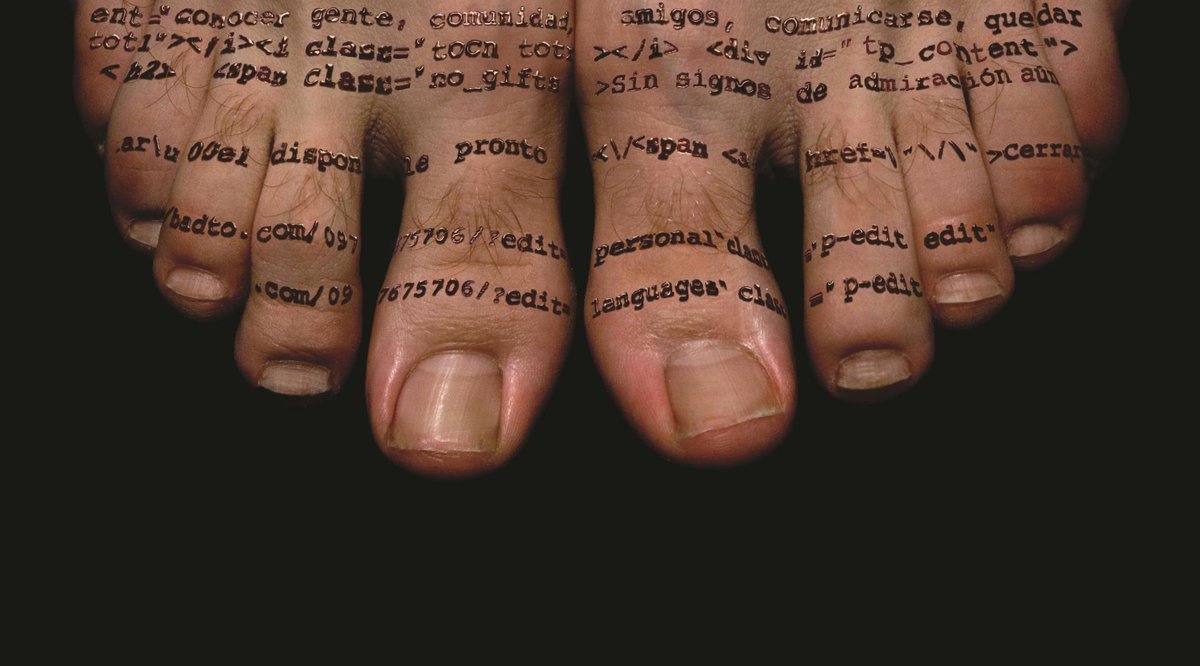 ent="conocer gente, comunidad, amigos, comunicarse, quedar
tot1"></i><i class="tocn tot ></i> <div id="tp_content">
<h2> <span class="no_gifts >Sin signos de admiración aún
ar\u 00e1 dispon le pronto <\/<span <a href=\"\/\" >cerrar
/badto.com/097 75706/?edit= personal"class ="p-edit edit"
.com/09 7675706/?edit= languages" class =" p-edit